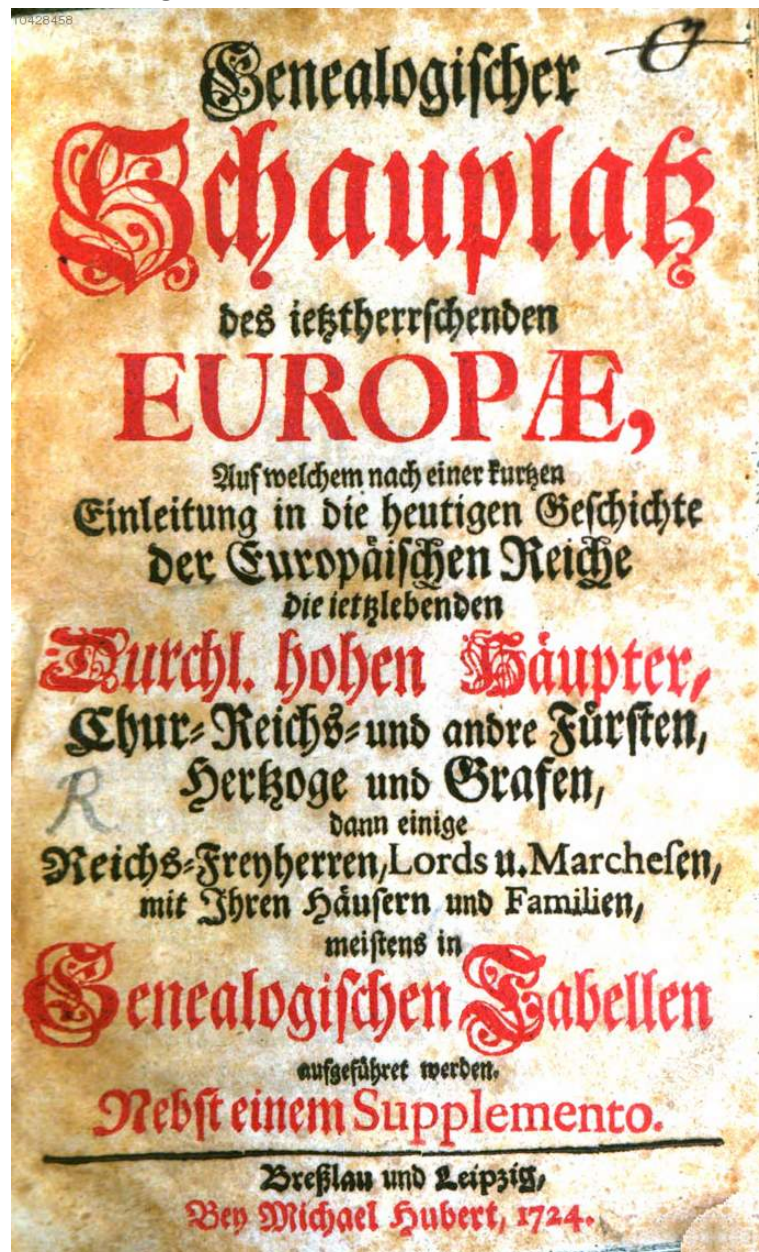 10428458
Genealogischer
Schauplatz
des ietztherrschenden
EUROPÆ,
Auf welchem nach einer kurtzen
Einleitung in die heutigen Geschichte
der Europäischen Reiche
die ietztlebenden
Durchl. hohen Häupter,
Chur-Reichs-und andre Fürsten,
Hertzoge und Grafen,
R
dann einige
Reichs-Freyherren, Lords u. Marchesen,
mit Ihren Häusern und Familien,
meistens in
Genealogischen Tabellen
aufgeführet werden.
Nebst einem Supplemento.
Breßlau und Leipzig,
Bey Michael Hubert, 1724.